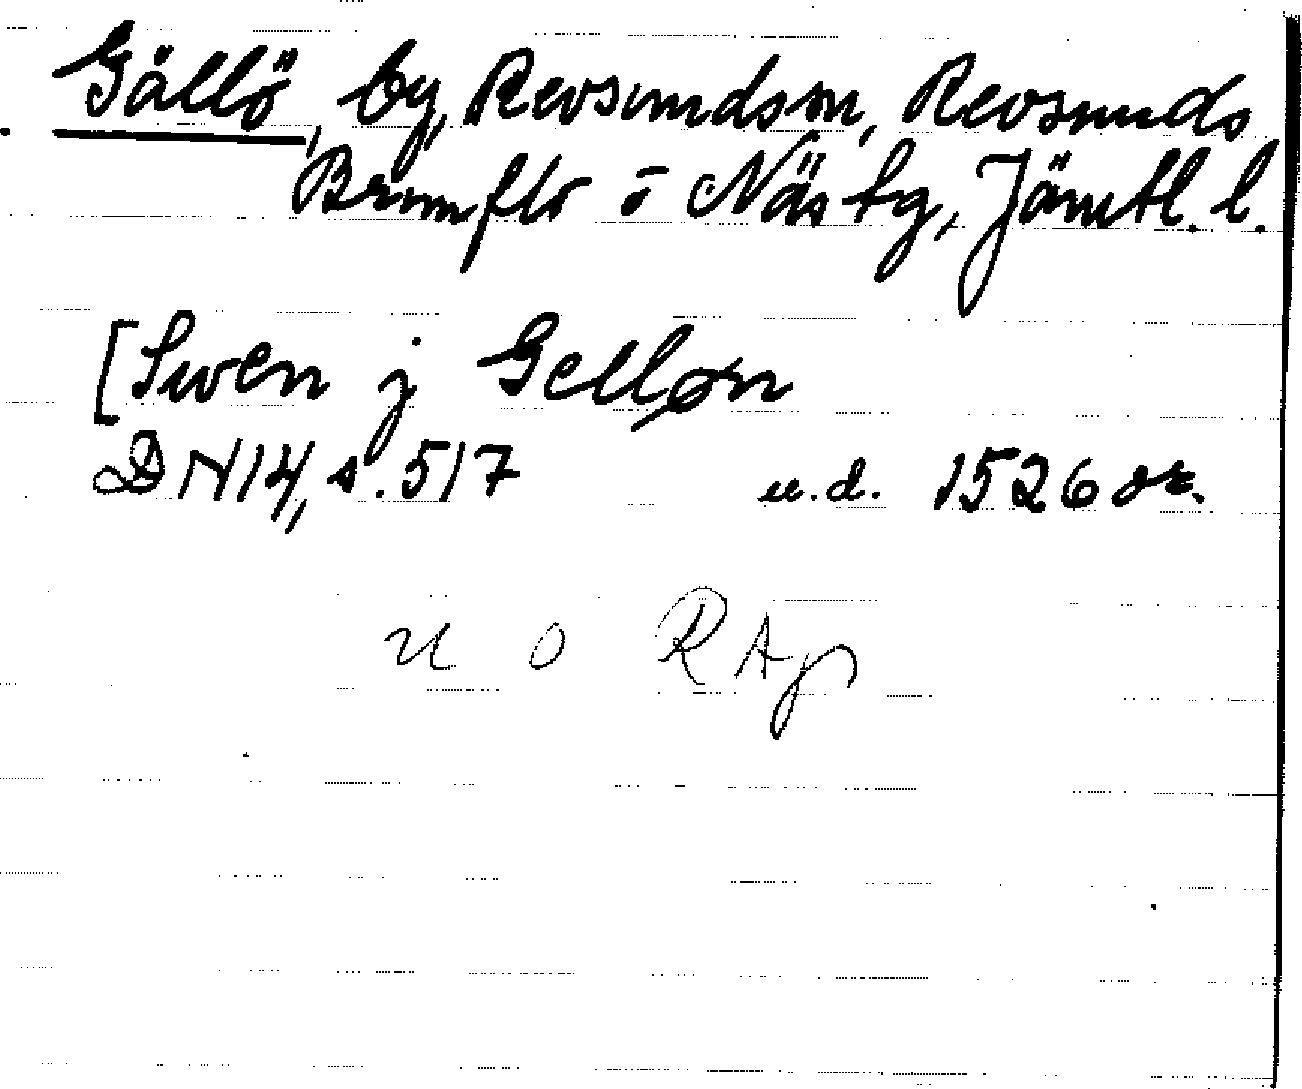 Gällö, by, Revsundsm, Revsunds
Brunflo o Näs tg, Jämtl. l.
[Swen j Gelløn
DN 14, s. 517 u.d. 1526 or.